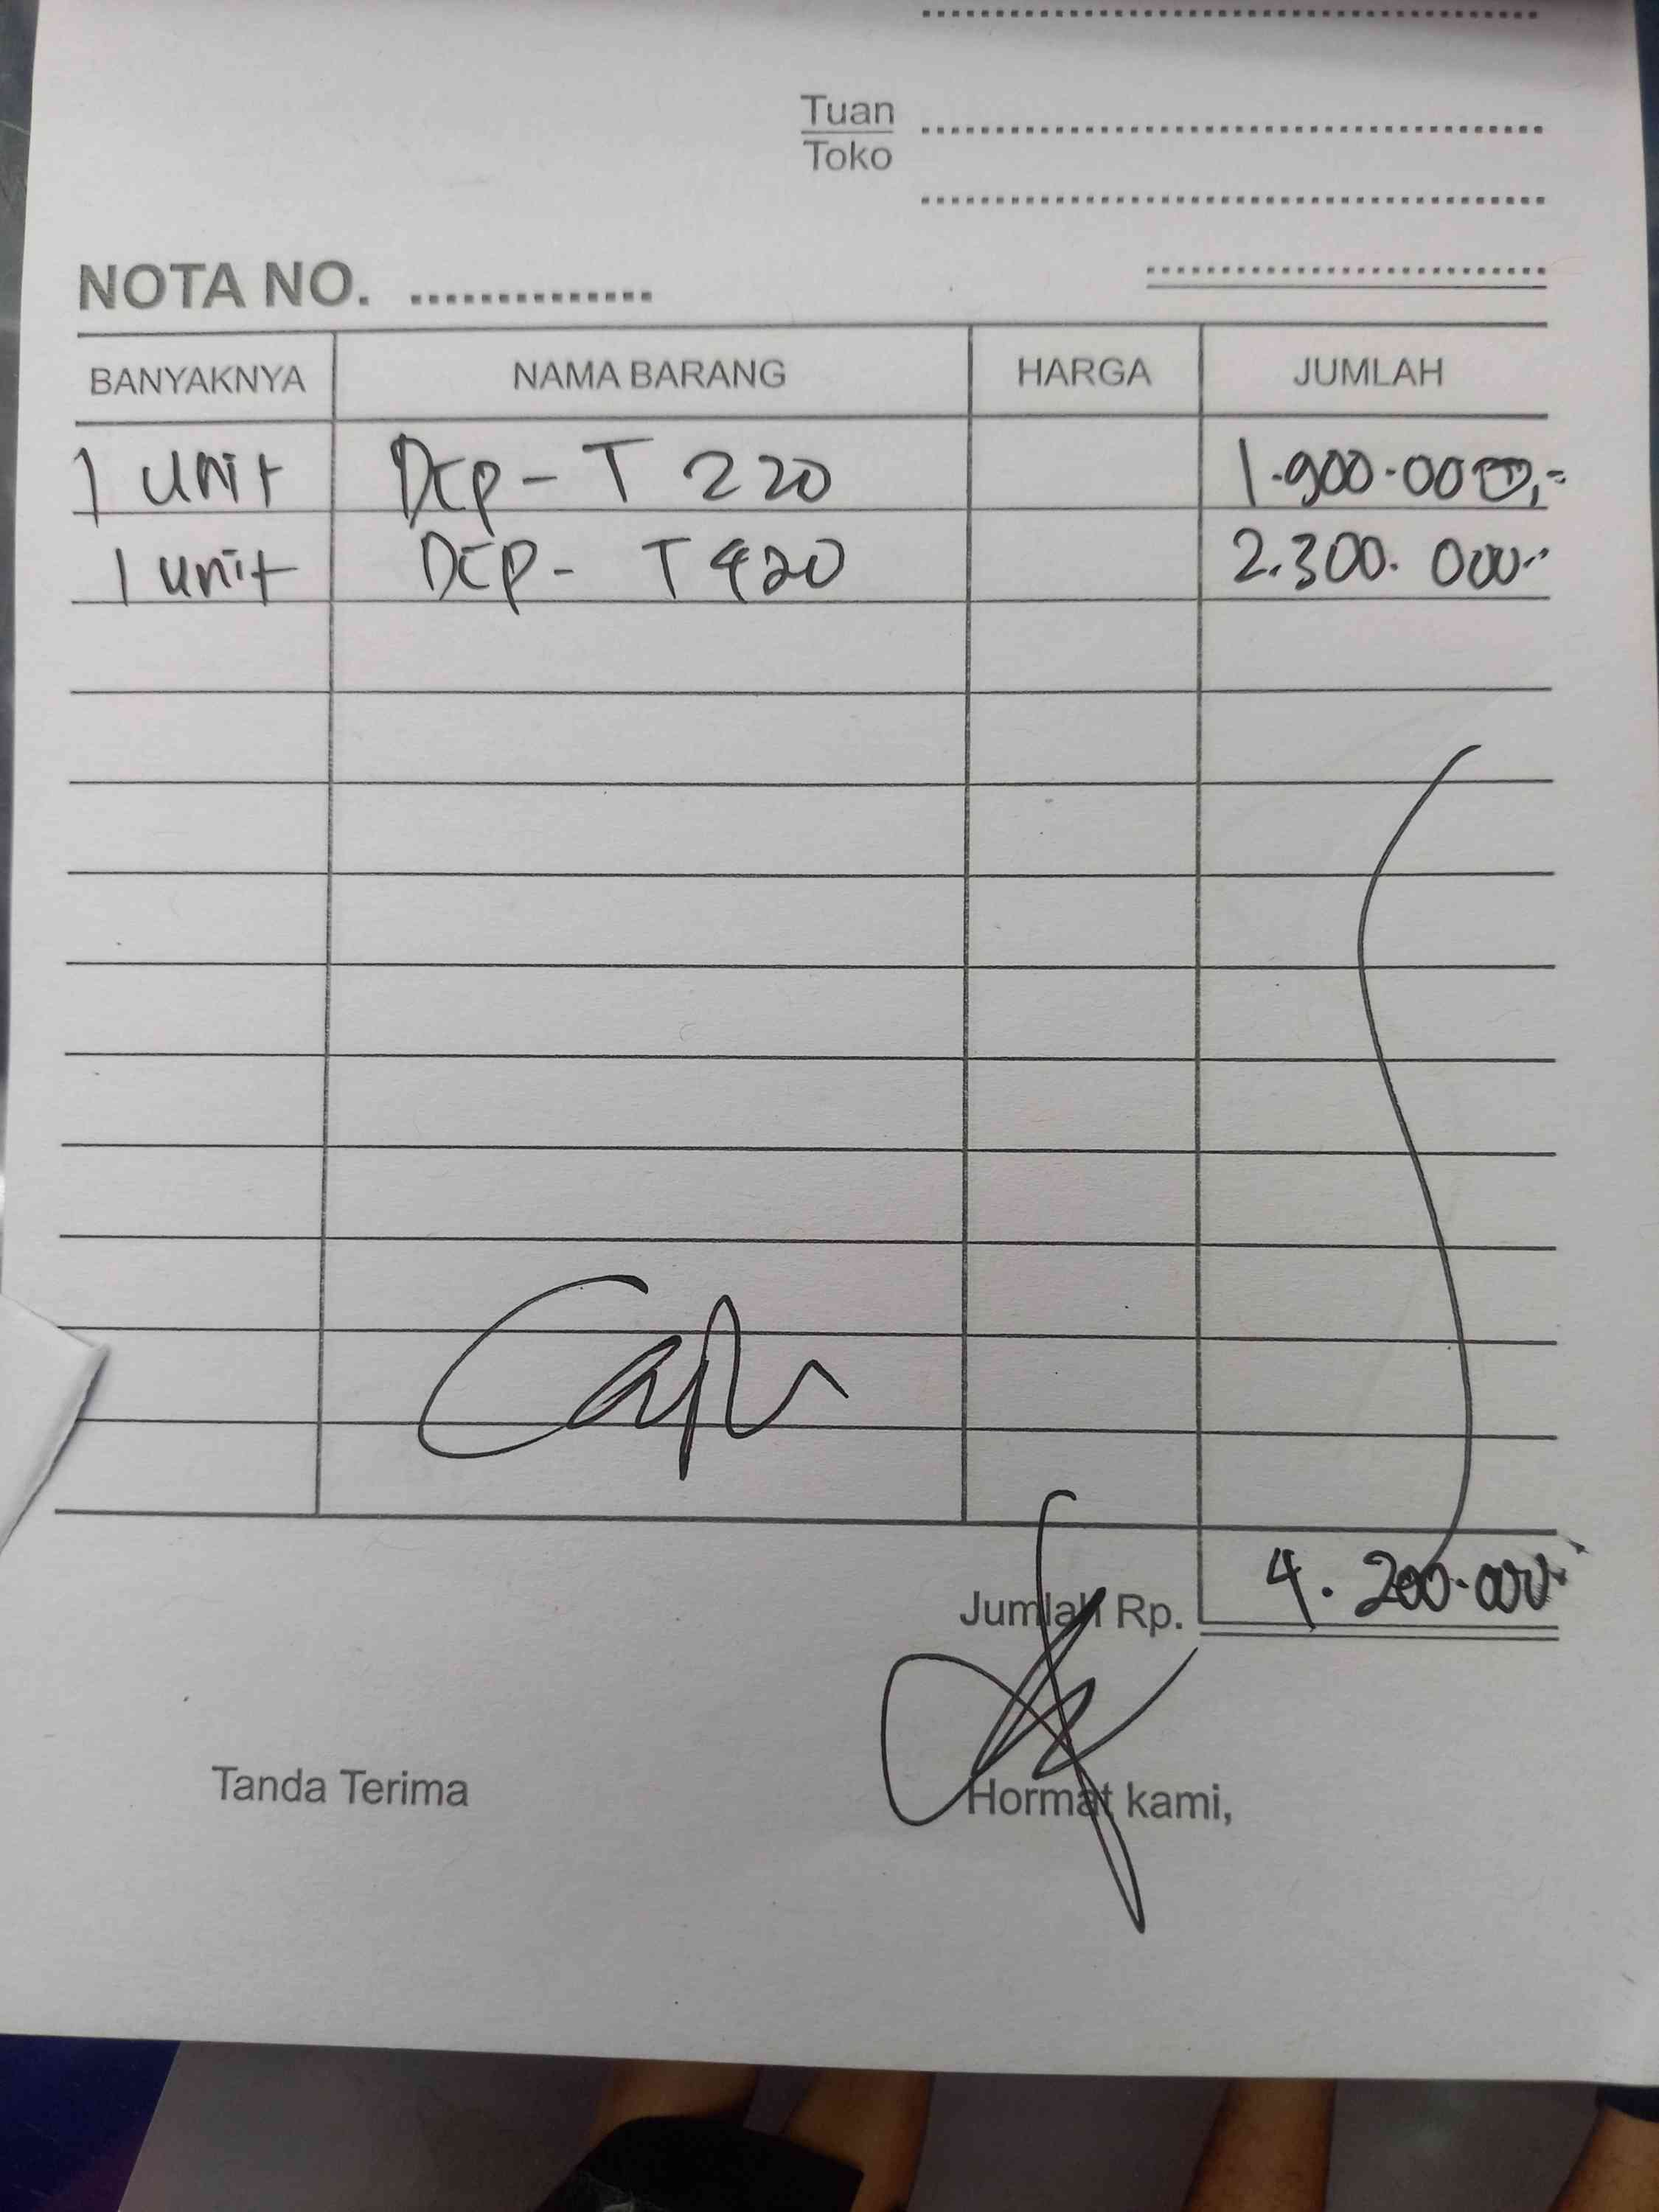 Tuan
Toko
NOTA NO. ..............
BANYAKNYA NAMA BARANG HARGA JUMLAH
1 unit DCP - T 220 1.900.000,-
1 unit DCP - T420 2.300.000.-
Jumlah Rp. 4.200.000
Tanda Terima Hormat kami,